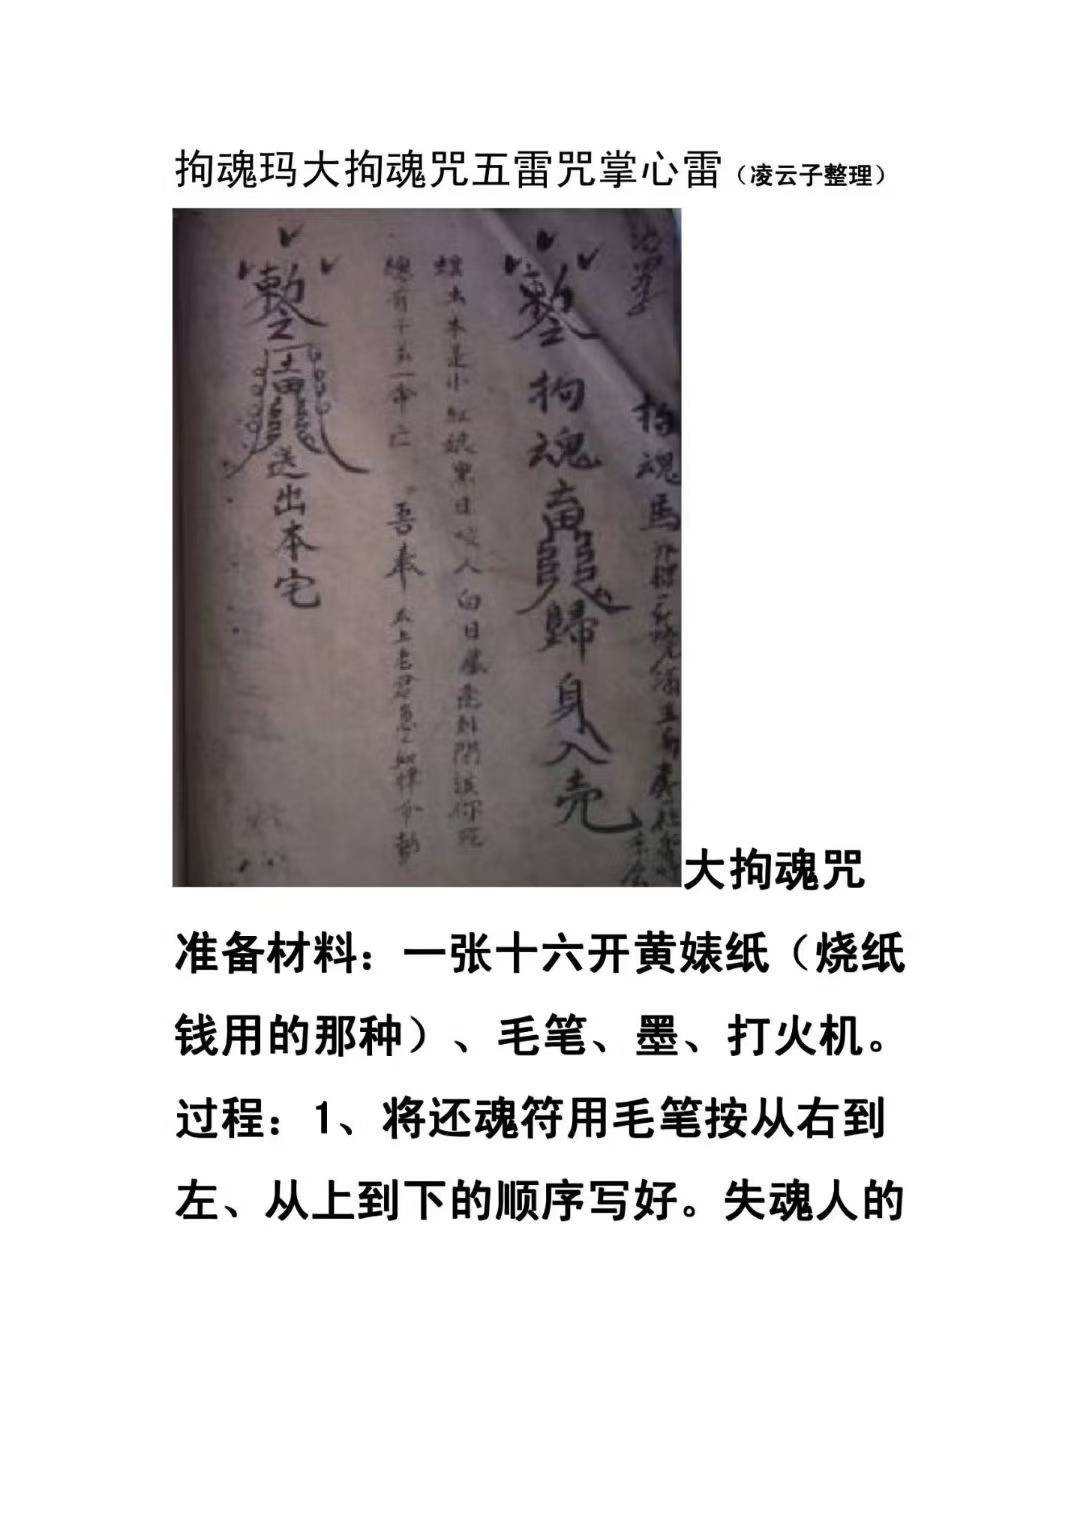 拘魂玛大拘魂咒五雷咒掌心雷（凌云子整理）
拘魂馬
拘魂
歸身入壳
蟲本是小紅娘黑日咬人白日藏
總有千萬一命亡 吾奉太上老君急急如律令敕
送出本宅
大拘魂咒
准备材料：一张十六开黄婊纸（烧纸
钱用的那种）、毛笔、墨、打火机。
过程：1、将还魂符用毛笔按从右到
左、从上到下的顺序写好。失魂人的